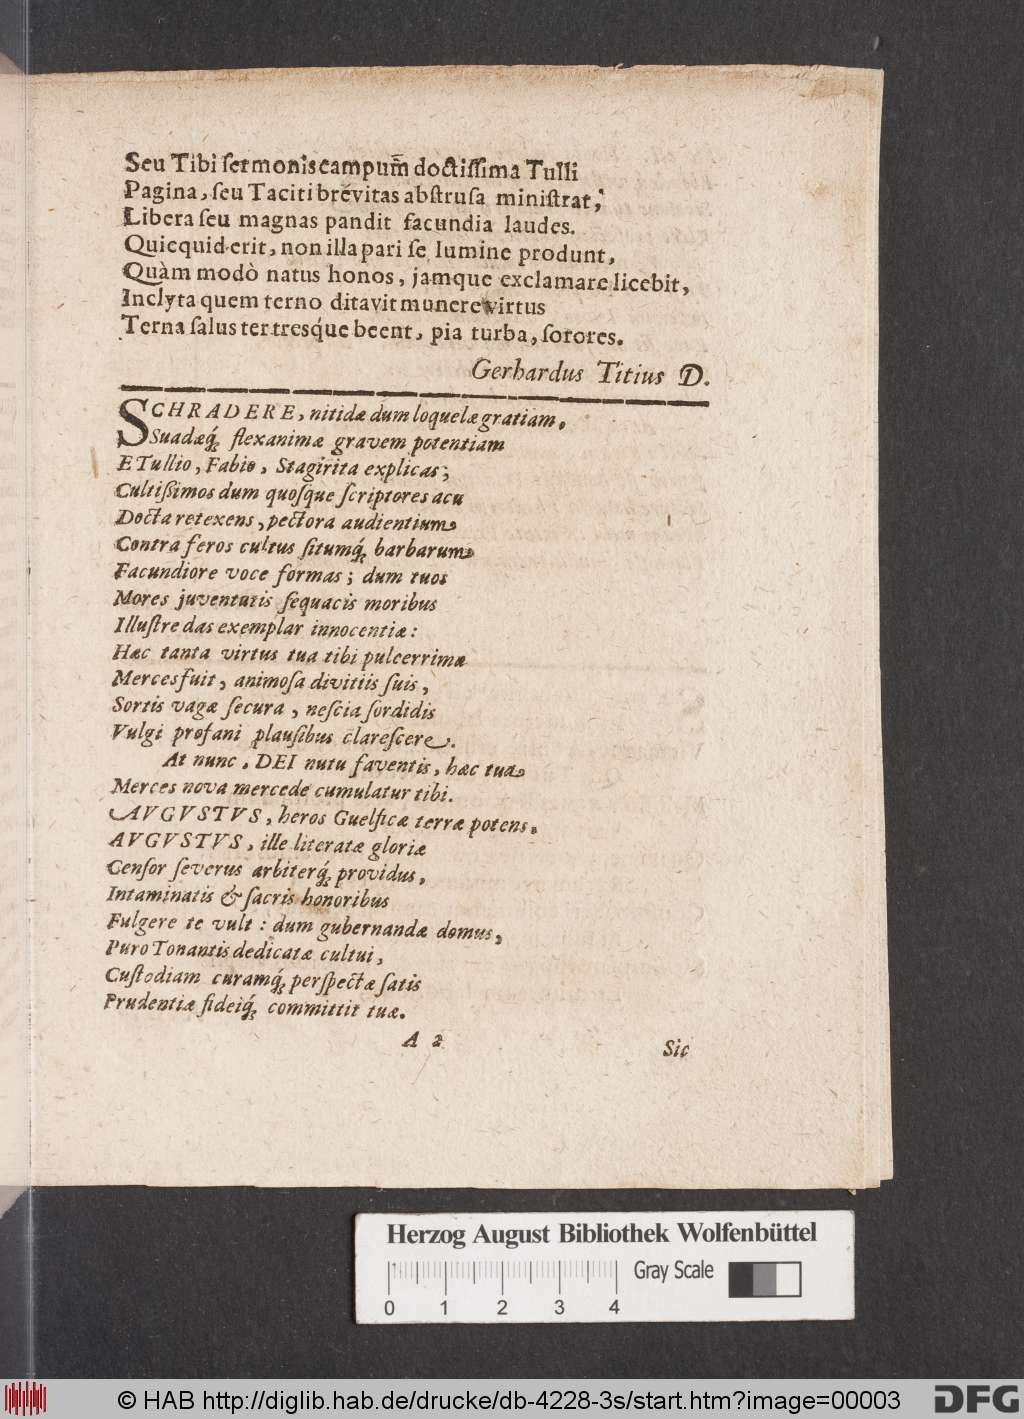 Seu Tibi ſermonis campum̃ doctiſſima Tulli
Pagina, ſeu Taciti brevitas abſtruſa miniſtrat,
Libera ſeu magnas pandit facundia laudes.
Quicquid erit, non illa pari ſe lumine produnt,
Quàm modò natus honos, jamque exclamare licebit,
Inclyta quem terno ditavit munere virtus
Terna ſalus ter tresq́ue beent, pia turba, ſorores.
Gerhardus Titius D.
SCHRADERE, nitidæ dum loquelæ gratiam,
Suadæq́; flexanimæ gravem potentiam
E Tullio, Fabio, Stagirita explicas;
Cultiſſimos dum quoſque ſcriptores acu
Docta retexens, pectora audientium
Contra feros cultus ſitumq́; barbarum
Facundiore voce formas; dum tuos
Mores juventutis ſequacis moribus
Illuſtre das exemplar innocentiæ:
Hæc tanta virtus tua tibi pulcerrima
Merces fuit, animoſa divitiis ſuis,
Sortis vagæ ſecura, neſcia ſordidis
Vulgi profani plauſibus clareſcere.
At nunc, DEI nutu faventis, hæc tua
Merces nova mercede cumulatur tibi.
AVGVSTVS, heros Guelficæ terræ potens,
AVGVSTVS, ille literatæ gloriæ
Cenſor ſeverus arbiterq́; providus,
Intaminatis & ſacris honoribus
Fulgere te vult: dum gubernandæ domus,
Puro Tonantis dedicatæ cultui,
Cuſtodiam curamq́; perſpectæ ſatis
Prudentiæ fideiq́; committit tuæ.
A 2
Sic
Herzog August Bibliothek Wolfenbüttel
Gray Scale
0 1 2 3 4
© HAB http://diglib.hab.de/drucke/db-4228-3s/start.htm?image=00003
DFG